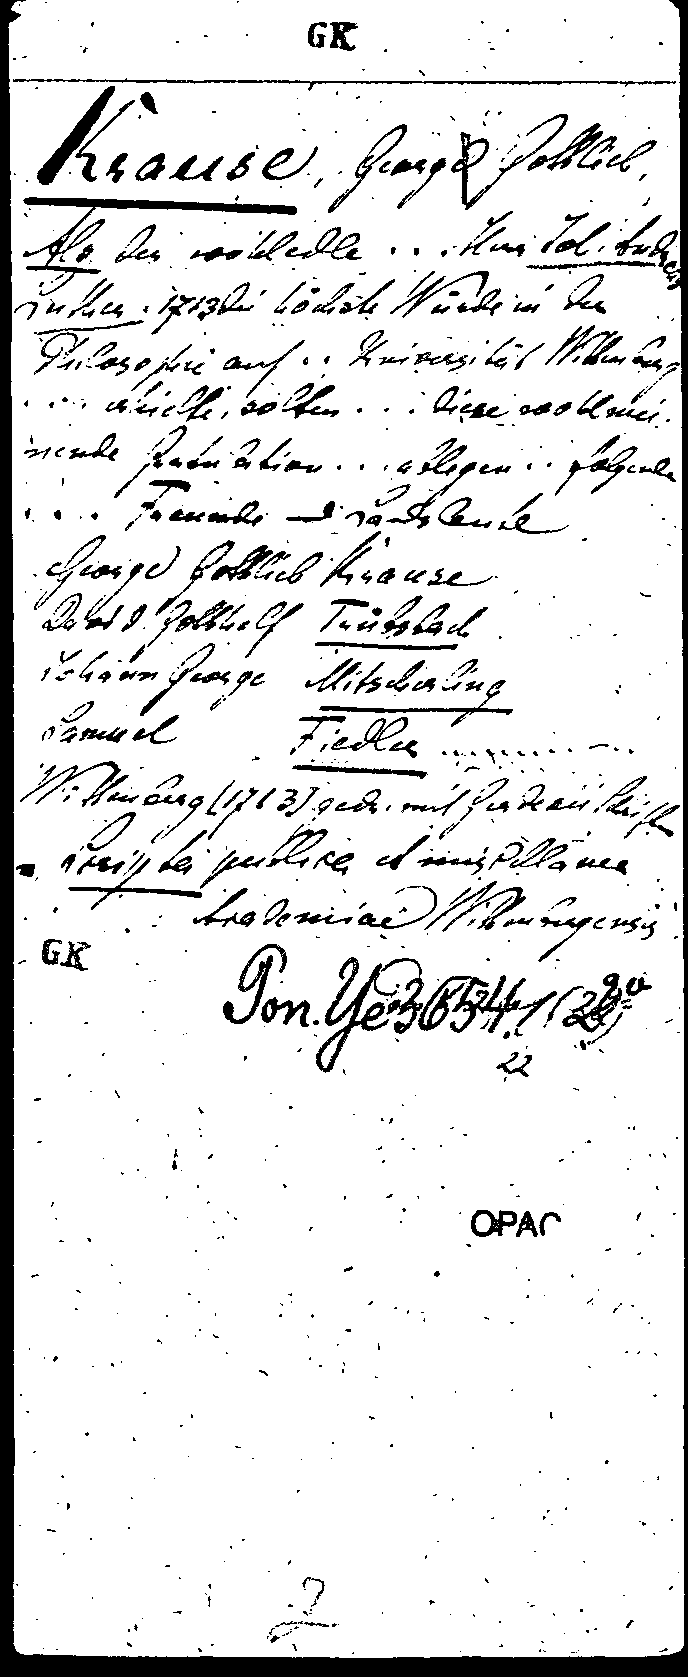 GK
Krause, George Gottlieb,
Als der wohledle . . . Herr Joh. Andreas
Luther . 1713 die höchste Würde in der
Philosophie auf . . Universität Wittenberg
. . . erhielte, solten . . . diese wohlmei-
nende Gratulation . . . ablegen . . folgende
. . . Freunde und Landsleute
George Gottlieb Krause
David Gotthelf
Johann George Mitscherling
Samuel Fiedler
Wittenberg (1713) gedr. mit Schriften
= Scripta publica et miscellanea
Academiae Wittenbergensis
GK
Pon. Ye 3654
22
OPAC
2